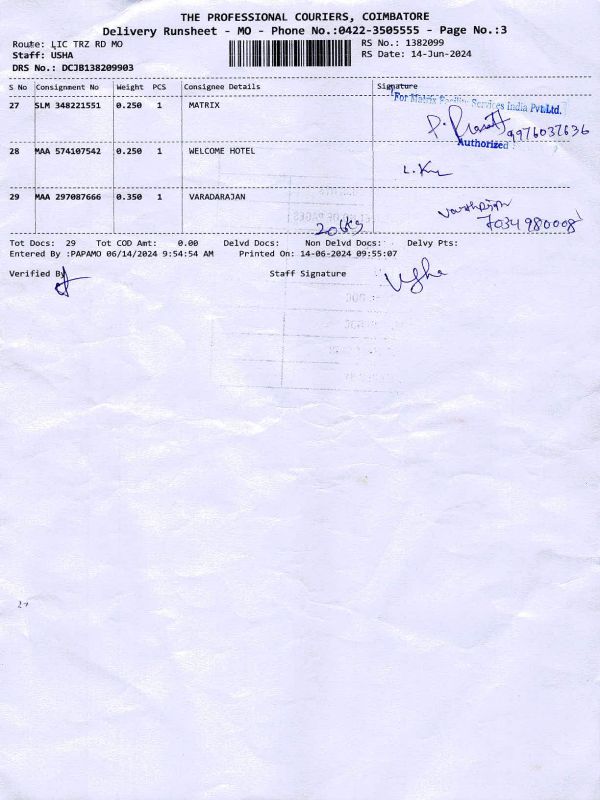 THE PROFESSIONAL COURIERS, COIMBATORE
Delivery Runsheet - MO - Phone No.:0422-3505555 - Page No.:3
Route: LIC TRZ RD MO
RS No.: 1382099
Staff: USHA
RS Date: 14-Jun-2024
DRS No.: DCJB138209903
S No Consignment No Weight PCS Consignee Details Signature
27 SLM 348221551 0.250 1 MATRIX
For Matrix Facility Services India Pvt.Ltd.
9976037636
Authorized
28 MAA 574107542 0.250 1 WELCOME HOTEL
29 MAA 297087666 0.350 1 VARADARAJAN
7034980008
Tot Docs: 29 Tot COD Amt: 0.00 Delvd Docs: Non Delvd Docs: Delvy Pts:
Entered By :PAPAMO 06/14/2024 9:54:54 AM Printed On: 14-06-2024 09:55:07
Verified By Staff Signature Usha